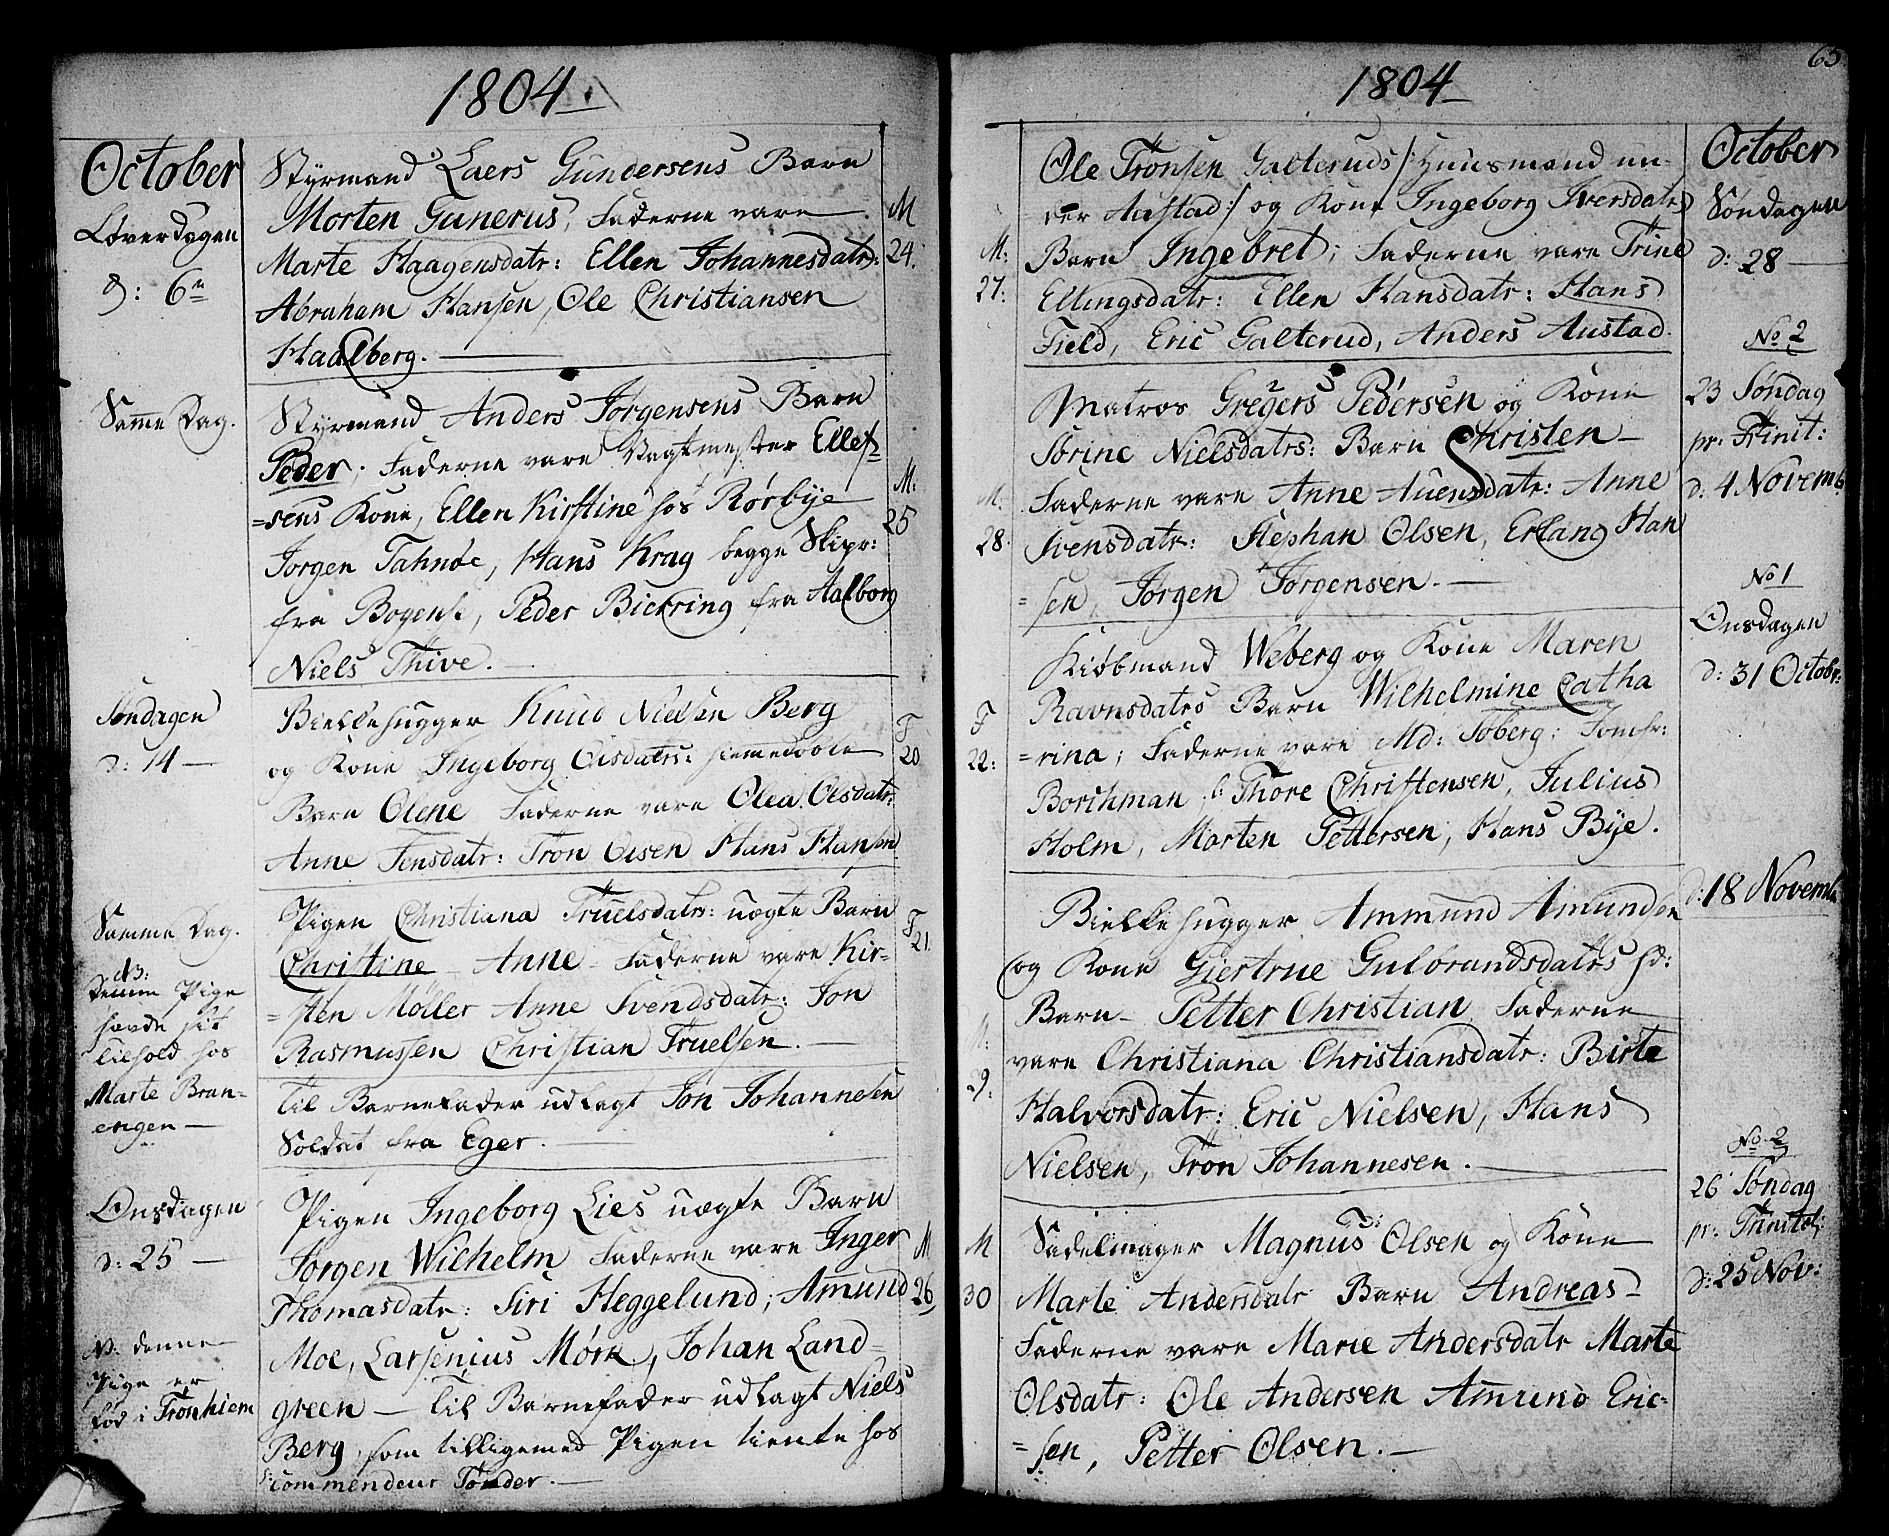 1804.
October
Løverdagen
d: 6te
Styrmand Laers Gundersens Barn
Morten Gunerus, Faderne vare
Marte Haagensdatr: Ellen Johannesdatr:
Abraham Hansen, Ole Christiansen
Haalberg.
M
24.
Samme Dag.
Styrmand Anders Jørgensens Barn
Peder; Faderne vare Vagtmester Ellef=
=sens Kone, Ellen Kirstine hos Rørbye
Jørgen Tahnøe, Hans Krag begge Skipr:
fra Bogense, Peder Bierring fra Aalborg
Niels Thive.
M:
25
Søndagen
d: 14
Biellkehugger Knud Nielsen Berg
og Kone Ingeborg Olsdatrs: hiemedøbte
Barn Olene Faderne vare Olea Olsdatr:
Anne Jensdatr: Tron Olsen Hans Hansen
F
20
Samme Dag.
NB:
Denne Pige
havde sit
tilhold hos
Marte Bran=
engen
Pigen Christiana Truelsdatrs: uægte Barn
Christine Anne Faderne vare Kir=
=sten Møller Anne Svendsdatr: Jon
Rasmussen Christian Truelsen.
Til Barnefader udlagt Jon Johannesen
Soldat fra Eger.
F
21.
Onsdagen
d: 25
NB: denne
Pige er
fød i Tronhiem
Pigen Ingeborg Lies uægte Barn
Jørgen Wilhelm Faderne vare Inger
Thomasdatr: Siri Heggelund, Amund
Moe, Larsenius Mørk, Johan Land=
green — Til Barnefader udlagt Niels
Berg, som tilligemed Pigen tiente hos
commendeur Tønder.
M
26
1804
65
October
Søndagen
d: 28
Ole Tronsen Galteruds /: Huusmand un=
der Austad :/ og Kone Ingeborg Iversdatrs
Barn Ingebret; Faderne vare Trine
Ellingsdatr: Ellen Hansdatr: Hans
Field, Eric Galterud, Anders Austad.
M:
27:
No 2
23 Søndag
pr: Trinit:
d: 4 Novemb
Matros Gregers Pedersen og Kone
Sørine Nielsdatrs: Barn Christen
Faderne vare Anne Auensdatr: Anne
Svensdatr: Stephan Olsen, Erland Han
=sen, Jørgen Jørgensen.
M.
28.
No 1
Onsdagen
d: 31 Octobr:
Kiøbmand Weberg og Kone Maren
Ravnsdatrs Barn Wilhelmine Catha
=rina; Faderne vare Md: Søberg; Jomfr:
Borchman, Thore Christensen, Julius
Holm, Morten Pettersen, Hans Bye.
F
22:
d: 18 Novemb
Biellkehugger Ammund Amundsen
og Kone Giertrue Gulbrandsdatrs hd:
Barn Petter Christian Faderne
vare Christiana Christiansdatr: Birte
Halvorsdatr: Eric Nielsen, Hans
Nielsen, Tron Johannesen.
29:
No 2
26 Søndag
pr: Trinitat:
d: 25 Nov:
Sadelmager Magnus Olsen og Kone
Marte Andersdatr Barn Andreas
Faderne vare Marie Andersdatr Marte
Olsdatr: Ole Andersen Amund Eric=
=sen, Petter Olsen.
M
30